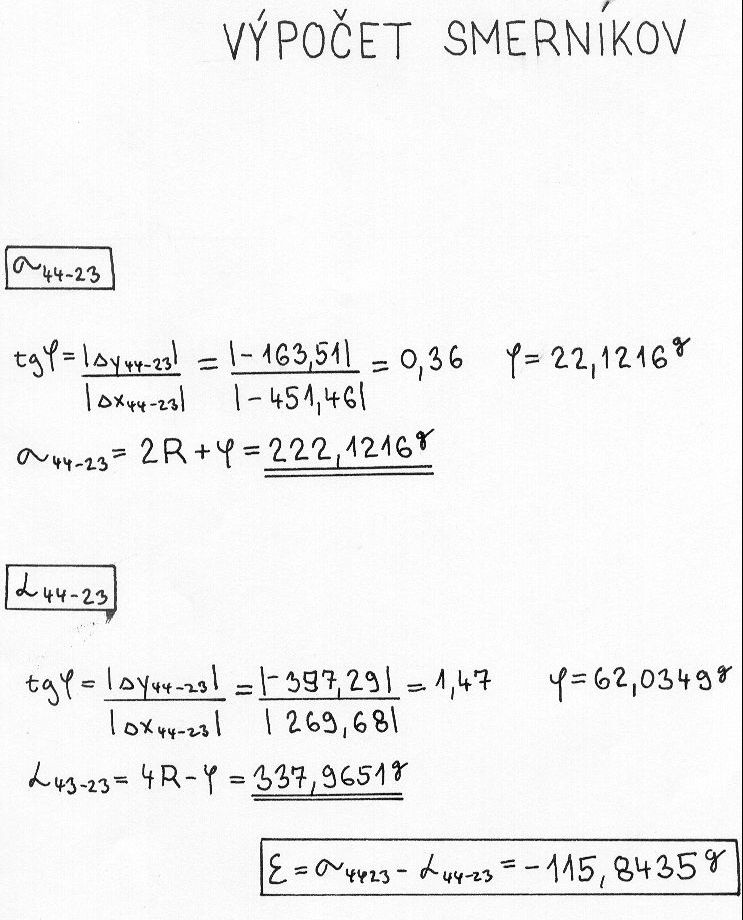 VÝPOČET SMERNÍKOV
σ44-23
tgφ = |Δy44-23| / |Δx44-23| = |-163,51| / |-451,46| = 0,36 φ = 22,1216ᵍ
σ44-23 = 2R + φ = 222,1216ᵍ
α44-23
tgφ = |Δy44-23| / |Δx44-23| = |-397,29| / |269,68| = 1,47 φ = 62,0349ᵍ
α43-23 = 4R - φ = 337,9651ᵍ
ε = σ4423 - α44-23 = -115,8435ᵍ